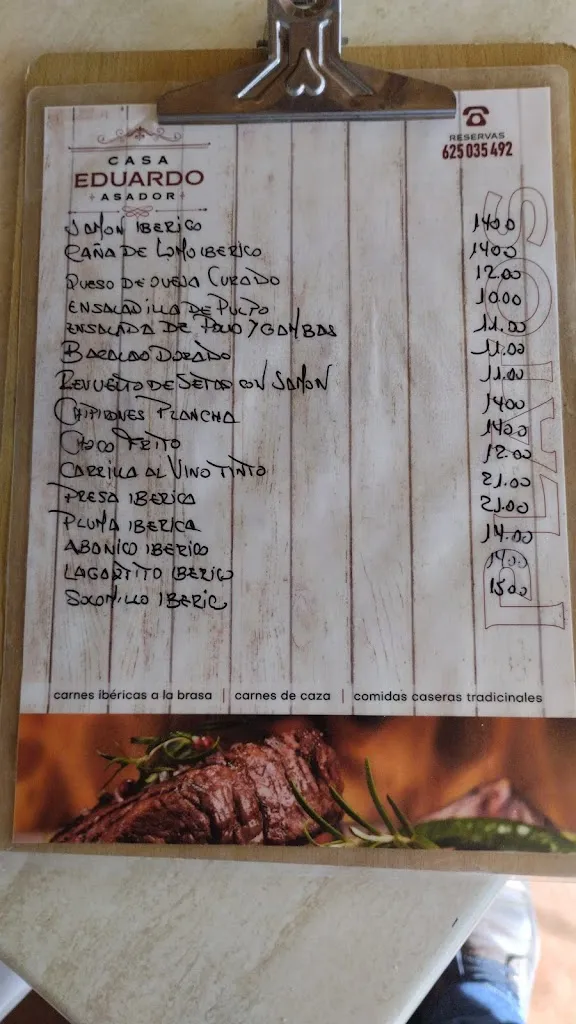 CASA
EDUARDO
ASADOR
RESERVAS
625 035 492
JAMON IBERICO 14.00
CAÑA DE LOMO IBERICO 14.00
QUESO DE OVEJA CURADO 12.00
ENSALADILLA DE PULPO 10.00
ENSALADA DE POLLO Y GAMBAS 11.00
BACALAO DORADO 11.00
REVUELTO DE SETAS CON JAMON 11.00
CHIPIRONES PLANCHA 14.00
CHOCO FRITO 14.00
CARRILLA AL VINO TINTO 12.00
PRESA IBERICA 21.00
PLUMA IBERICA 21.00
ABANICO IBERICO 14.00
LAGARTITO IBERICO 14.00
SOLOMILLO IBERIC 15.00
PLATOS
carnes ibéricas a la brasa | carnes de caza | comidas caseras tradicinales